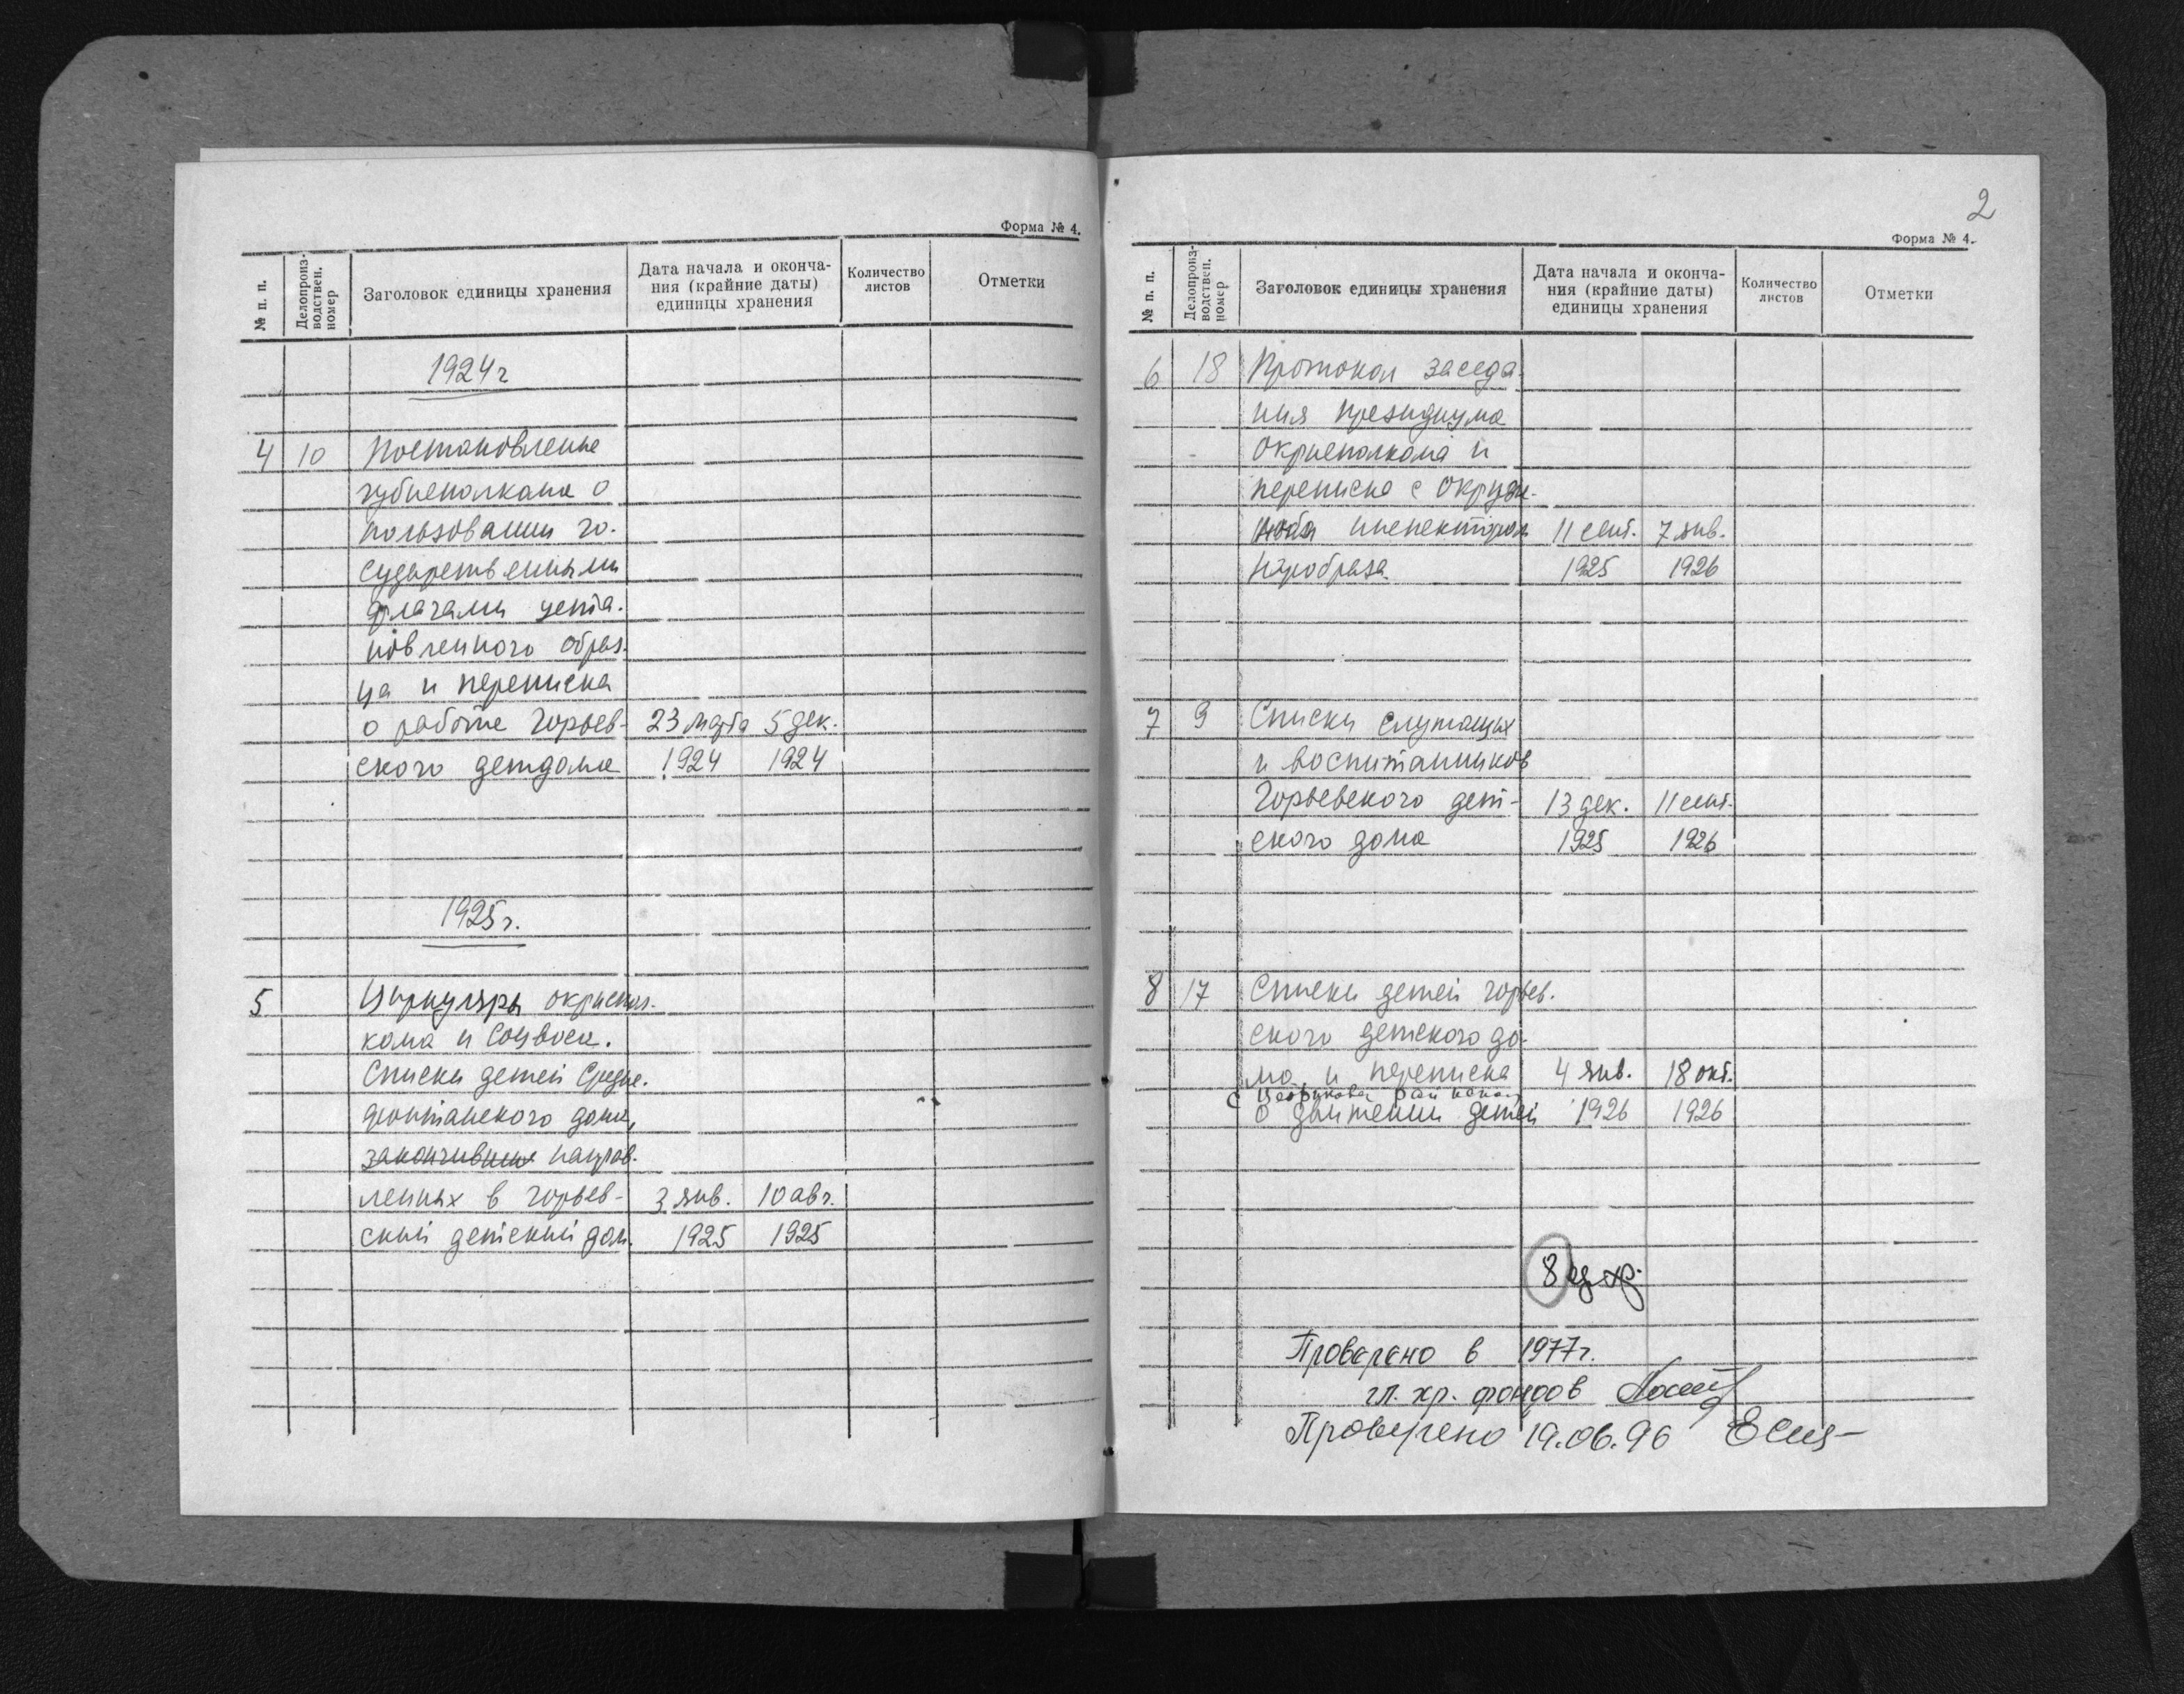 Форма № 4.
№ п. п.
Делопроиз-
водствен.
номер
Заголовок единицы хранения
Дата начала и оконча-
ния (крайние даты)
единицы хранения
Количество
листов
Отметки
1924г
4 10 Постановление
губисполкома о
пользовании го-
сударственными
флагами уста-
новленного образ-
ца и переписка
о работе Горьев- 23 марта 5 дек.
ского детдома 1924 1924
1925г.
5 Циркуляры окриспол-
кома и Соцвоса.
Списки детей Средне-
фонтанского дома,
закончивших направ-
ленных в Горьев- 3 янв. 10 авг.
ский детский дом. 1925 1925
2
Форма № 4.
№ п. п.
Делопроиз-
водствен.
номер
Заголовок единицы хранения
Дата начала и оконча-
ния (крайние даты)
единицы хранения
Количество
листов
Отметки
6 18 Протокол заседа-
ния президиума
Окрисполкома и
переписка с окруж-
инспектором 11 сент. 7 янв.
наробраза 1925 1926
7 9 Списки служащих
и воспитанников
Горьевского дет- 13 дек. 11 сент.
ского дома 1925 1926
8 17 Списки детей Горьев-
ского детского до-
ма и переписка 4 янв. 18 окт.
с
о движении детей 1926 1926
8 ед. хр.
Проверено в 1977г.
гл. хр. фондов
Проверено 19.06.96